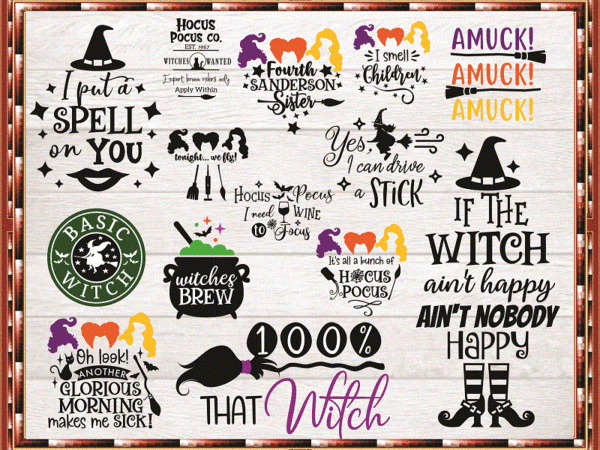 I put a
SPELL
on YOU
HOCUS
POCUS CO.
EST. 1967
WITCHES WANTED
Expert broom riders only
Apply Within
Fourth
SANDERSON
Sister
I smell
Children
AMUCK!
AMUCK!
AMUCK!
tonight... we fly!
Yes,
I can drive
a STICK
HOCUS POCUS
I need WINE
to Focus
IF THE
WITCH
ain't happy
AIN'T NOBODY
HAPPY
BASIC
WITCH
witches
BREW
It's all a bunch of
HOCUS
POCUS
Oh look!
ANOTHER
GLORIOUS
MORNING
makes me SICK!
100%
THAT Witch